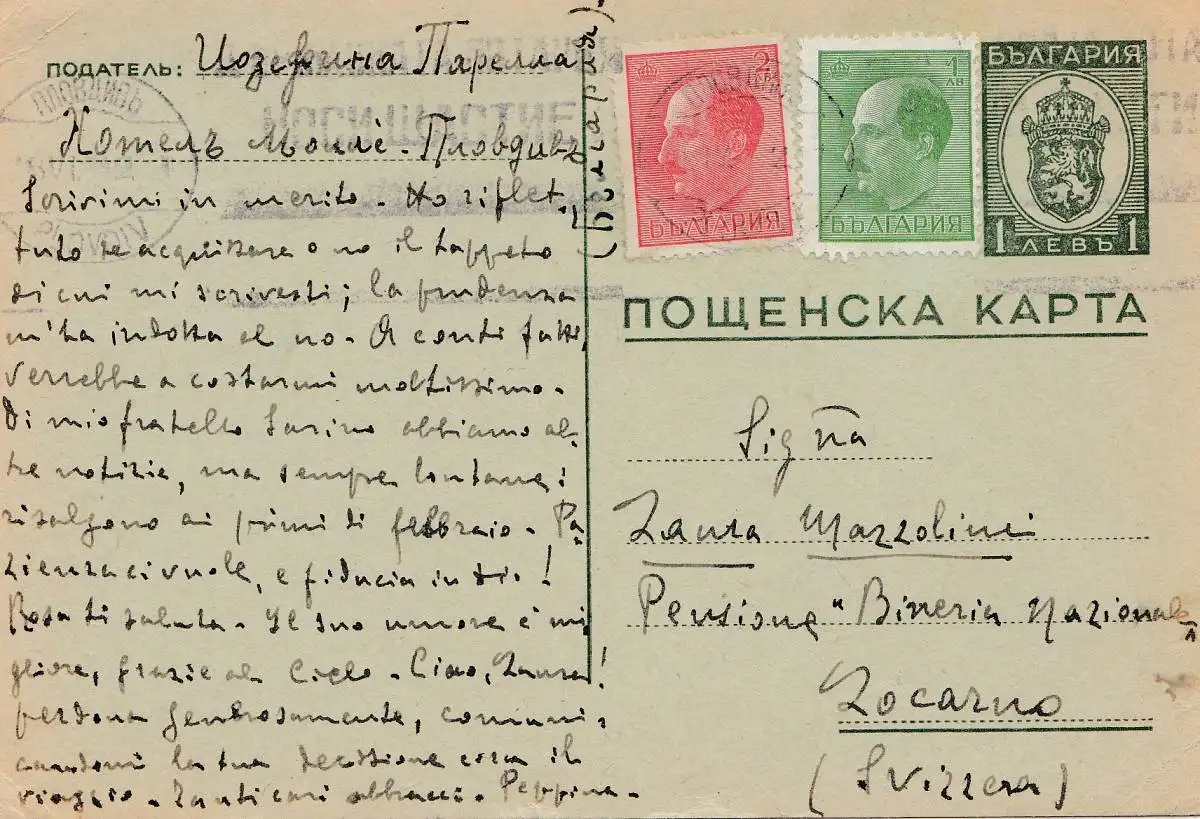 ПОДАТЕЛЬ: Иозефина Парелла
Хотелъ Молле - Пловдивъ
(България).
Scrivimi in merito. Ho riflet-
tuto se acquistare o no il tappeto
di cui mi scrivesti; la prudenza
m'ha indotta al no. A conti fatti,
verrebbe a costarmi moltissimo.
Di mio fratello Sarino abbiamo al-
tre notizie, ma sempre lontane:
risalgono ai primi di febbraio. Pa-
zienza ci vuole, e fiducia in Dio!
Rosa ti saluta. Il suo umore è mi-
gliore, grazie al Cielo. Ciao, Laura!
perdona generosamente, comuni-
candomi la tua decisione circa il
viaggio. Tanti cari abbracci. Peppina.
2 ЛВ
БЪЛГАРИЯ
1 ЛВ
БЪЛГАРИЯ
БЪЛГАРИЯ
1 ЛЕВЪ 1
ПЛОВДИВЪ
ПОЩЕНСКА КАРТА
Sigña
Laura Mazzolini
Pensione "Birreria Nazionale"
Locarno
(Svizzera)